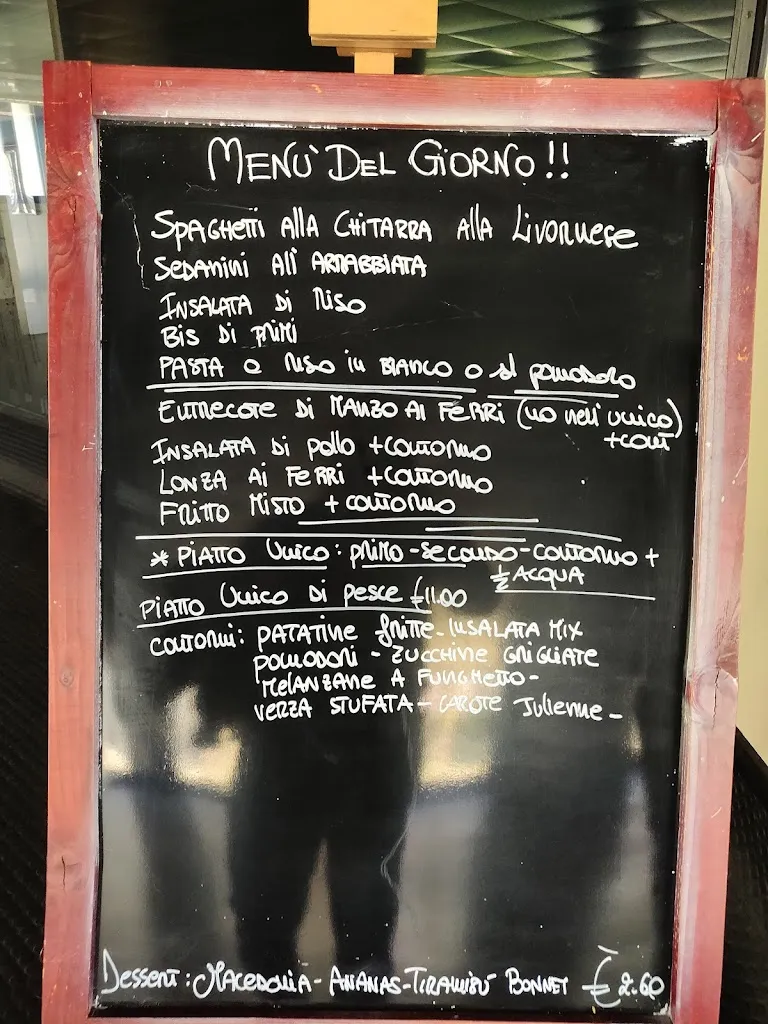 MENÙ DEL GIORNO!!
SPAGHETTI ALLA CHITARRA ALLA LIVORNESE
SEDANINI ALL' ARRABBIATA
INSALATA DI RISO
BIS DI PRIMI
PASTA O RISO IN BIANCO O AL POMODORO
ENTRECOTE DI MANZO AI FERRI (NO NELL'UNICO)
+CONT
INSALATA DI POLLO +CONTORNO
LONZA AI FERRI +CONTORNO
FRITTO MISTO +CONTORNO
* PIATTO UNICO: PRIMO-SECONDO-CONTORNO +
½ ACQUA
PIATTO UNICO DI PESCE €11.00
CONTORNI: PATATINE FRITTE-INSALATA MIX
POMODORI - ZUCCHINE GRIGLIATE
MELANZANE A FUNGHETTO-
VERZA STUFATA - CAROTE JULIENNE -
DESSERT: MACEDONIA-ANANAS-TIRAMISÙ BONNET €2.60